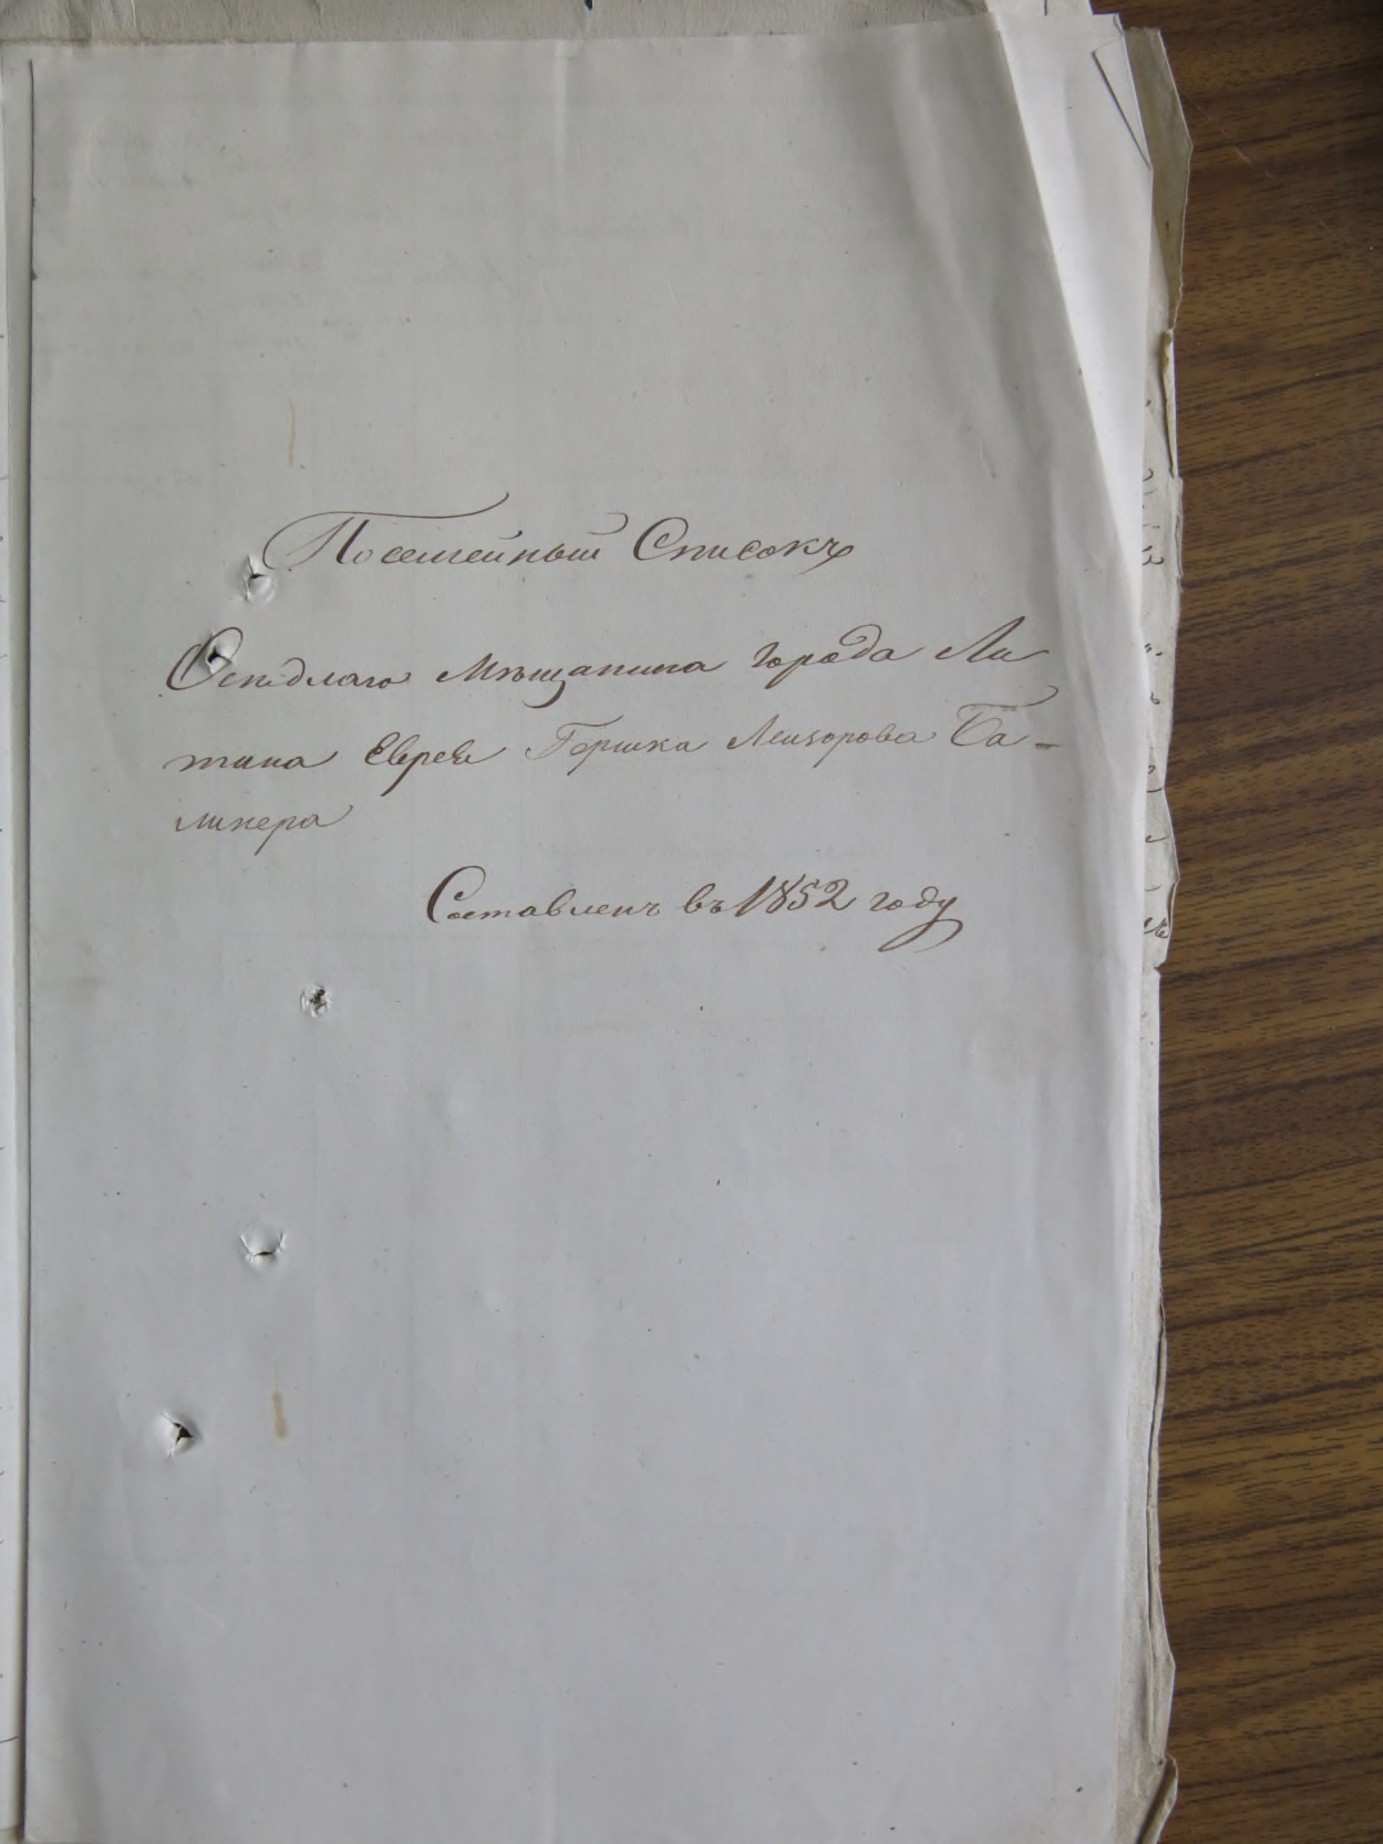 Посемейный Списокъ
Осѣдлаго Мѣщанина города Ли
тина Еврея Гершка Лейзорова Ба-
линера
Составленъ въ 1852 году